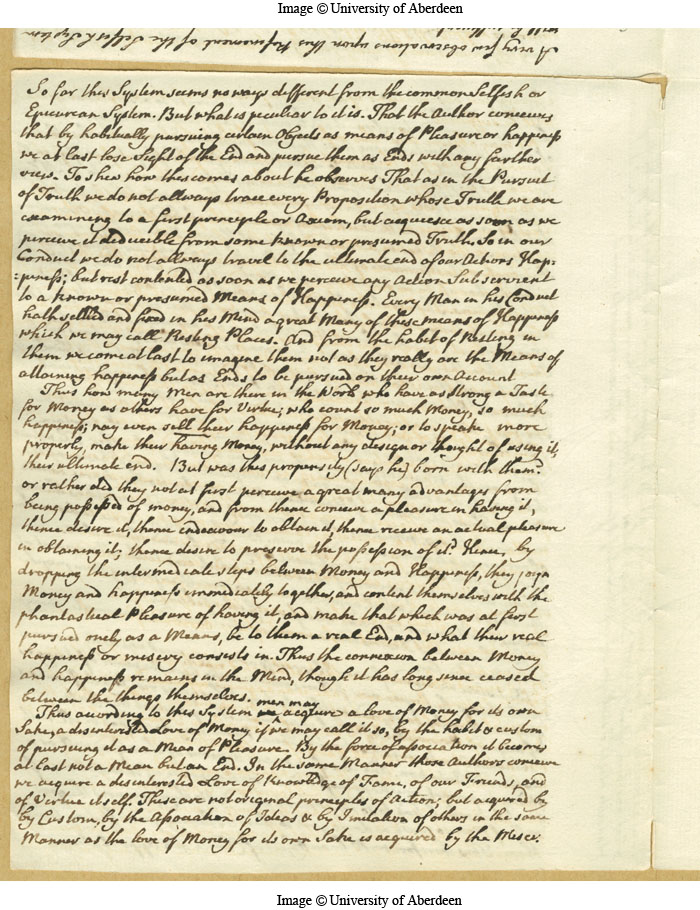 Image © University of Aberdeen
A very few observations upon this Refinement of the Selfish System
So far this System seems no ways different from the common Selfish or
Epicurean System. But what is peculiar to it is. That the Author conceives
that by habitually pursuing certain Objects as means of Pleasure or happiness
we at last lose Sight of the End and pursue them as Ends with any farther
view. To shew how this comes about he observes That as in the Pursuit
of Truth we do not allways trace every Proposition whose Truth we are
examining to a first principle or Axiom, but acquiesce as soon as we
perceive it deducible from some known or presumed Truth. So in our
Conduct we do not allways travel to the ultimate end of our Actions Hap-
-piness; but rest contented as soon as we perceive any Action Subservient
to a known or presumed Means of Happiness. Every Man in his Conduct
hath settled and fixed in his Mind a great Many of these means of Happiness
which we may call Resting Places. And from the habit of Resting in
them we come at last to imagine them not as they really are the Means of
attaining happiness but as Ends to be pursued on their own Account
Thus how many Men are there in the World who have as strong a Taste
for Money as others have for Virtue; who count so much Money, so much
happiness; nay even sell their happiness for Money; or to speake more
properly, make their having Money, without any design or thought of using it,
their ultimate end. But was this propensity (says he) born with them?
or rather did they not at first perceive a great many advantages from
being possessed of money, and from thence conceive a pleasure in having it,
thence desire it, thence endeavour to obtain it, thence receive an actual pleasure
in obtaining it; thence desire to preserve the possession of it? Hence, by
dropping the intermediate steps between Money and Happiness, they joyn
Money and happiness immediately together, and content themselves with the
phantastical Pleasure of having it, and make that which was at first
pursued onely as a Means, be to them a real End, and what their real
happiness or misery consists in. Thus the connexion between Money
and happiness remains in the Mind, though it has long since ceased
between the things themselves.
Thus according to this System men may acquire a love of Money for its own
Sake, a disinterested Love of Money if we may call it so, by the habit & custom
of pursuing it as a Mean of Pleasure. By the force of association it becomes
at last not a Mean but an End. In the same Manner those Authors conceive
we acquire a disinterested Love of Knowledge of Fame, of our Friends, and
of Virtue itself. These are not original principles of Action; but acquired by
by Custom, by the Association of Ideas & by Imitation of others in the same
Manner as the love of Money for its own Sake is acquired by the Miser.
Image © University of Aberdeen